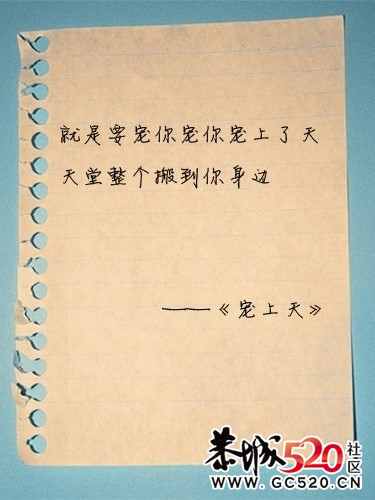 就是要宠你宠你宠上了天
天堂整个搬到你身边
——《宠上天》
恭城520社区
WWW.GC520.CN